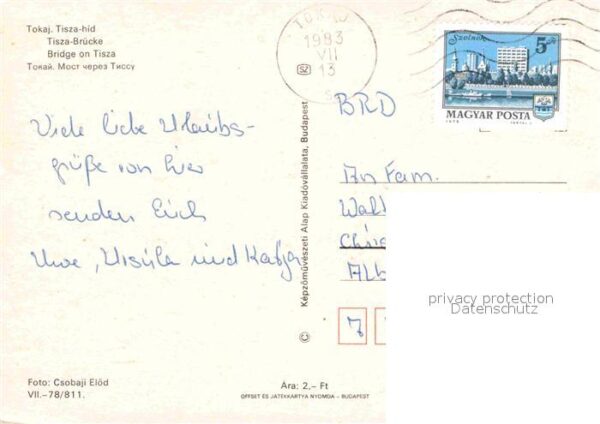 Tokaj. Tisza-híd
Tisza-Brücke
Bridge on Tisza
Токай. Мост через Тиссу
TOKAJ
1983
VII
13
Szolnok
5 Ft
MAGYAR POSTA
BRD
Viele liebe Urlaubs-
grüße von hier
senden Euch
Uwe, Ursula und Katja
An Fam.
Képzőművészeti Alap Kiadóvállalata, Budapest
privacy protection
Datenschutz
7
©
Foto: Csobaji Előd
VII.–78/811.
Ára: 2,– Ft
OFFSET ÉS JÁTÉKKÁRTYA NYOMDA – BUDAPEST